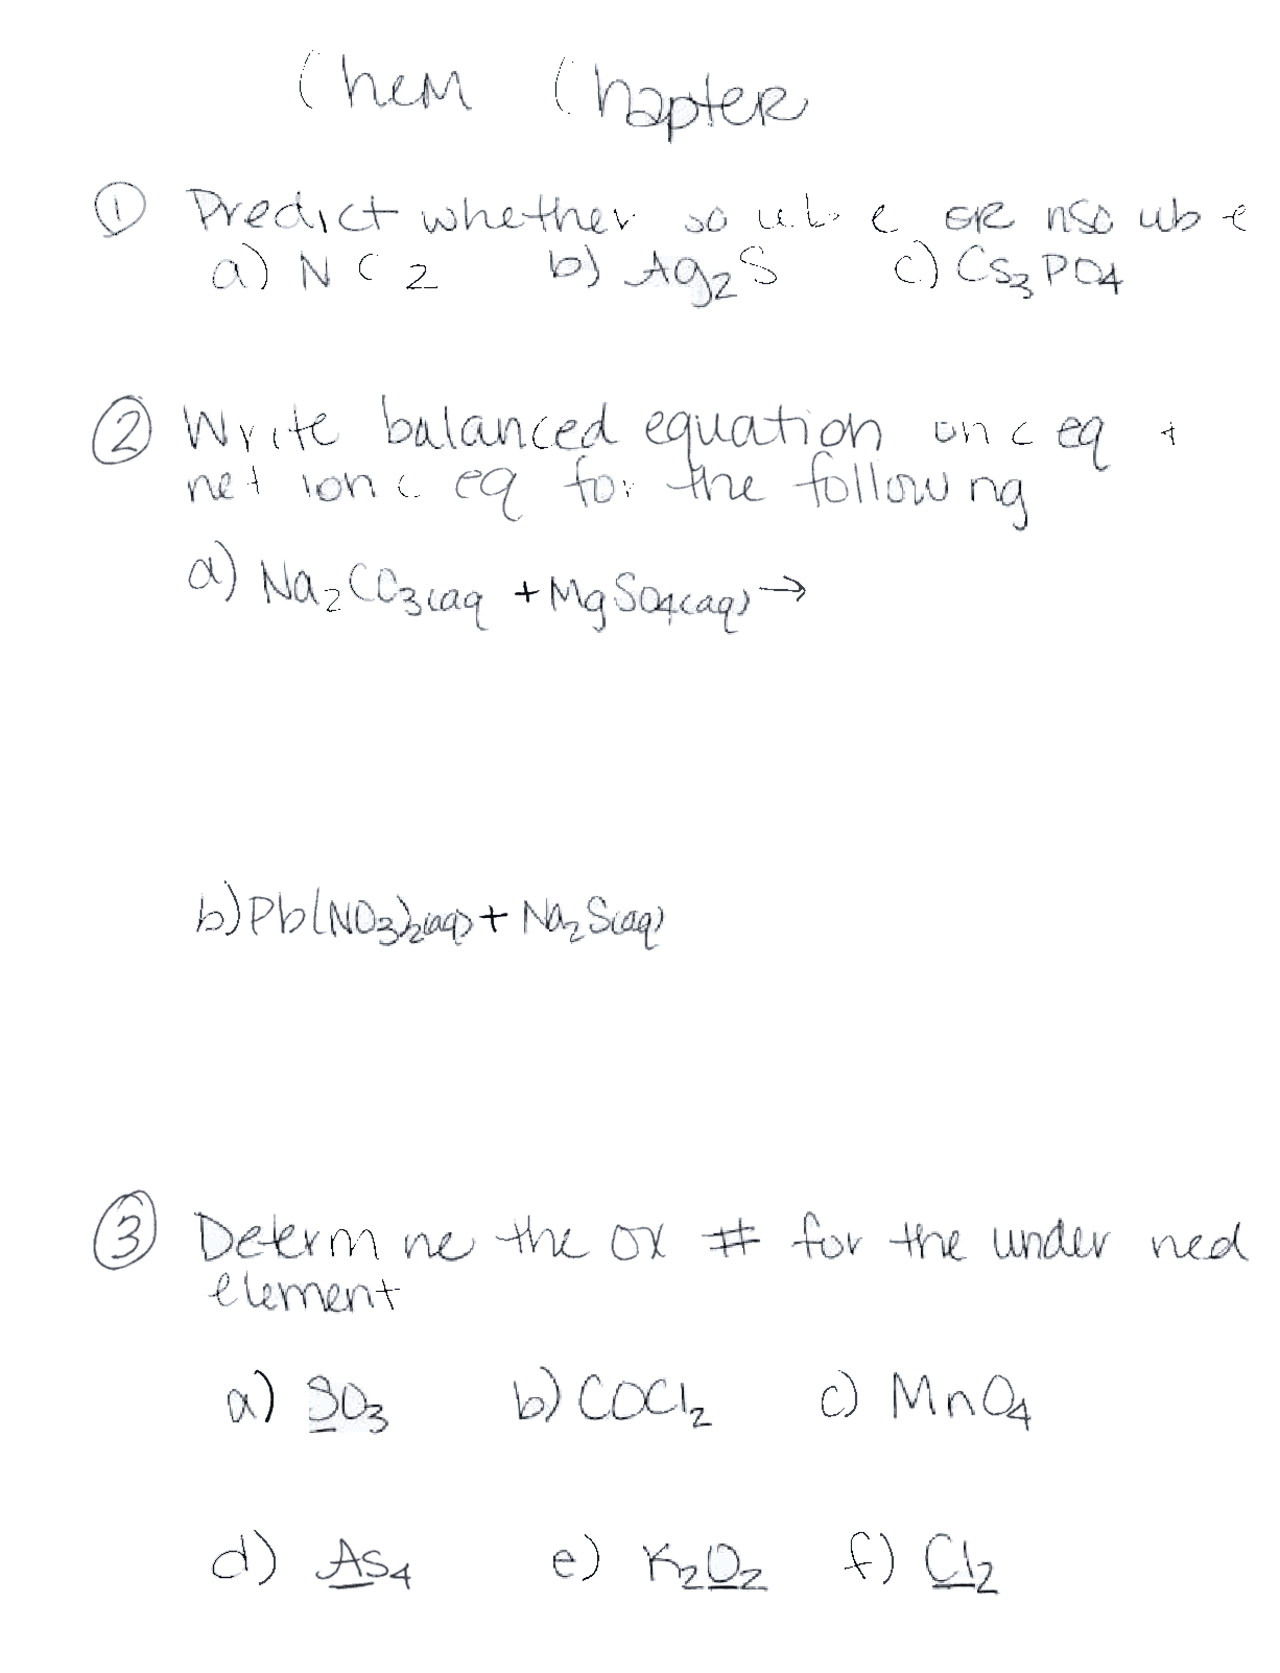 Chem Chapter
① Predict whether soluble or insoluble
a) NiCl2 b) Ag₂S c) Cs₃PO₄
② Write balanced equation ionic eq +
net ionic eq for the following
a) Na₂CO₃(aq + MgSO₄(aq) →
b) Pb(NO₃)₂(aq) + Na₂S(aq)
③ Determine the ox # for the underlined
element
a) SO₃ b) COCl₂ c) MnO₄
d) As₄ e) K₂O₂ f) Cl₂